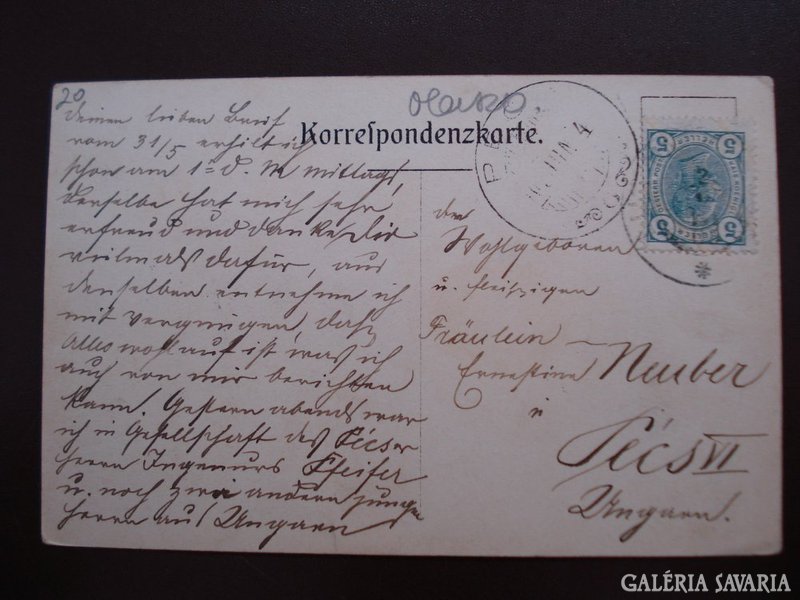 20
Korrespondenzkarte.
Deinen lieben Brief
vom 31/5 erhielt ich
schon am 1=d. M Mittags,
derselbe hat mich sehr
erfreud und danke Dir
vielmals dafür, aus
denselben entnehme ich
mit Vergnügen, daß
Alles wohlauf ist, was ich
auch von mir berichten
kann. Gestern abends war
ich in Gesellschaft des Pécser
Herrn Ingenieurs Pfeifer
u. noch zwei andern junge
Herrn aus Ungarn
der
Wohlgeboren
u. fleißigen
Fräulein
Ernestine Neuber
in
Pécs VI
Ungarn.
5 5
HELLER
5 5
GALÉRIA SAVARIA